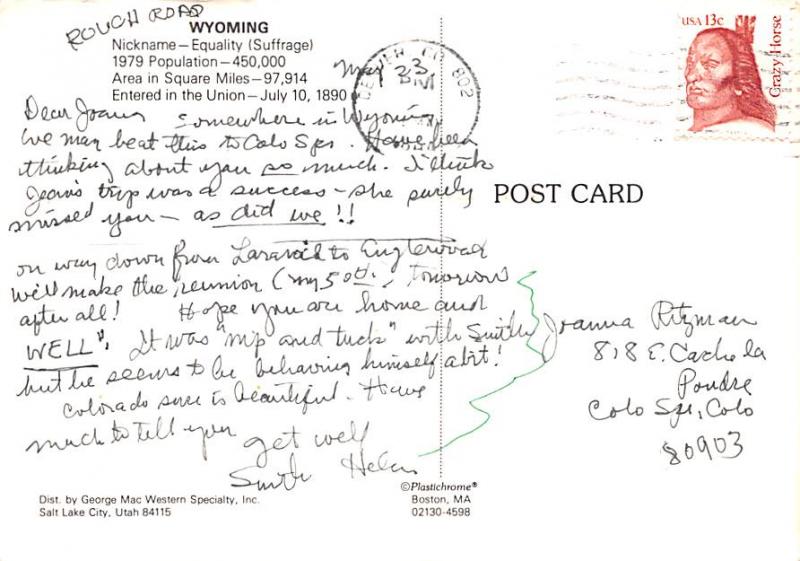 ROUGH ROAD
WYOMING
Nickname—Equality (Suffrage)
1979 Population—450,000
Area in Square Miles—97,914
Entered in the Union—July 10, 1890
May
DENVER, CO 802
23
PM
USA 13c
Crazy Horse
Dear Joanna somewhere in Wyoming
We may beat this to Colo Spr. Have been
thinking about you so much. I think
Jean's trip was a success - she surely
missed you - as did we!!
POST CARD
on way down from to Englewood
We'll make the reunion (my 50th), tomorrow
after all! Hope you are home and
WELL". It was "nip and tuck" with Smith
but he seems to be behaving himself a bit!
Colorado sure is beautiful. Have
much to tell you
get well
Smith Helen
Joanna Ritzman
818 E. Cache la
Poudre
Colo Spr, Colo
80903
Dist. by George Mac Western Specialty, Inc.
Salt Lake City, Utah 84115
©Plastichrome®
Boston, MA
02130-4598